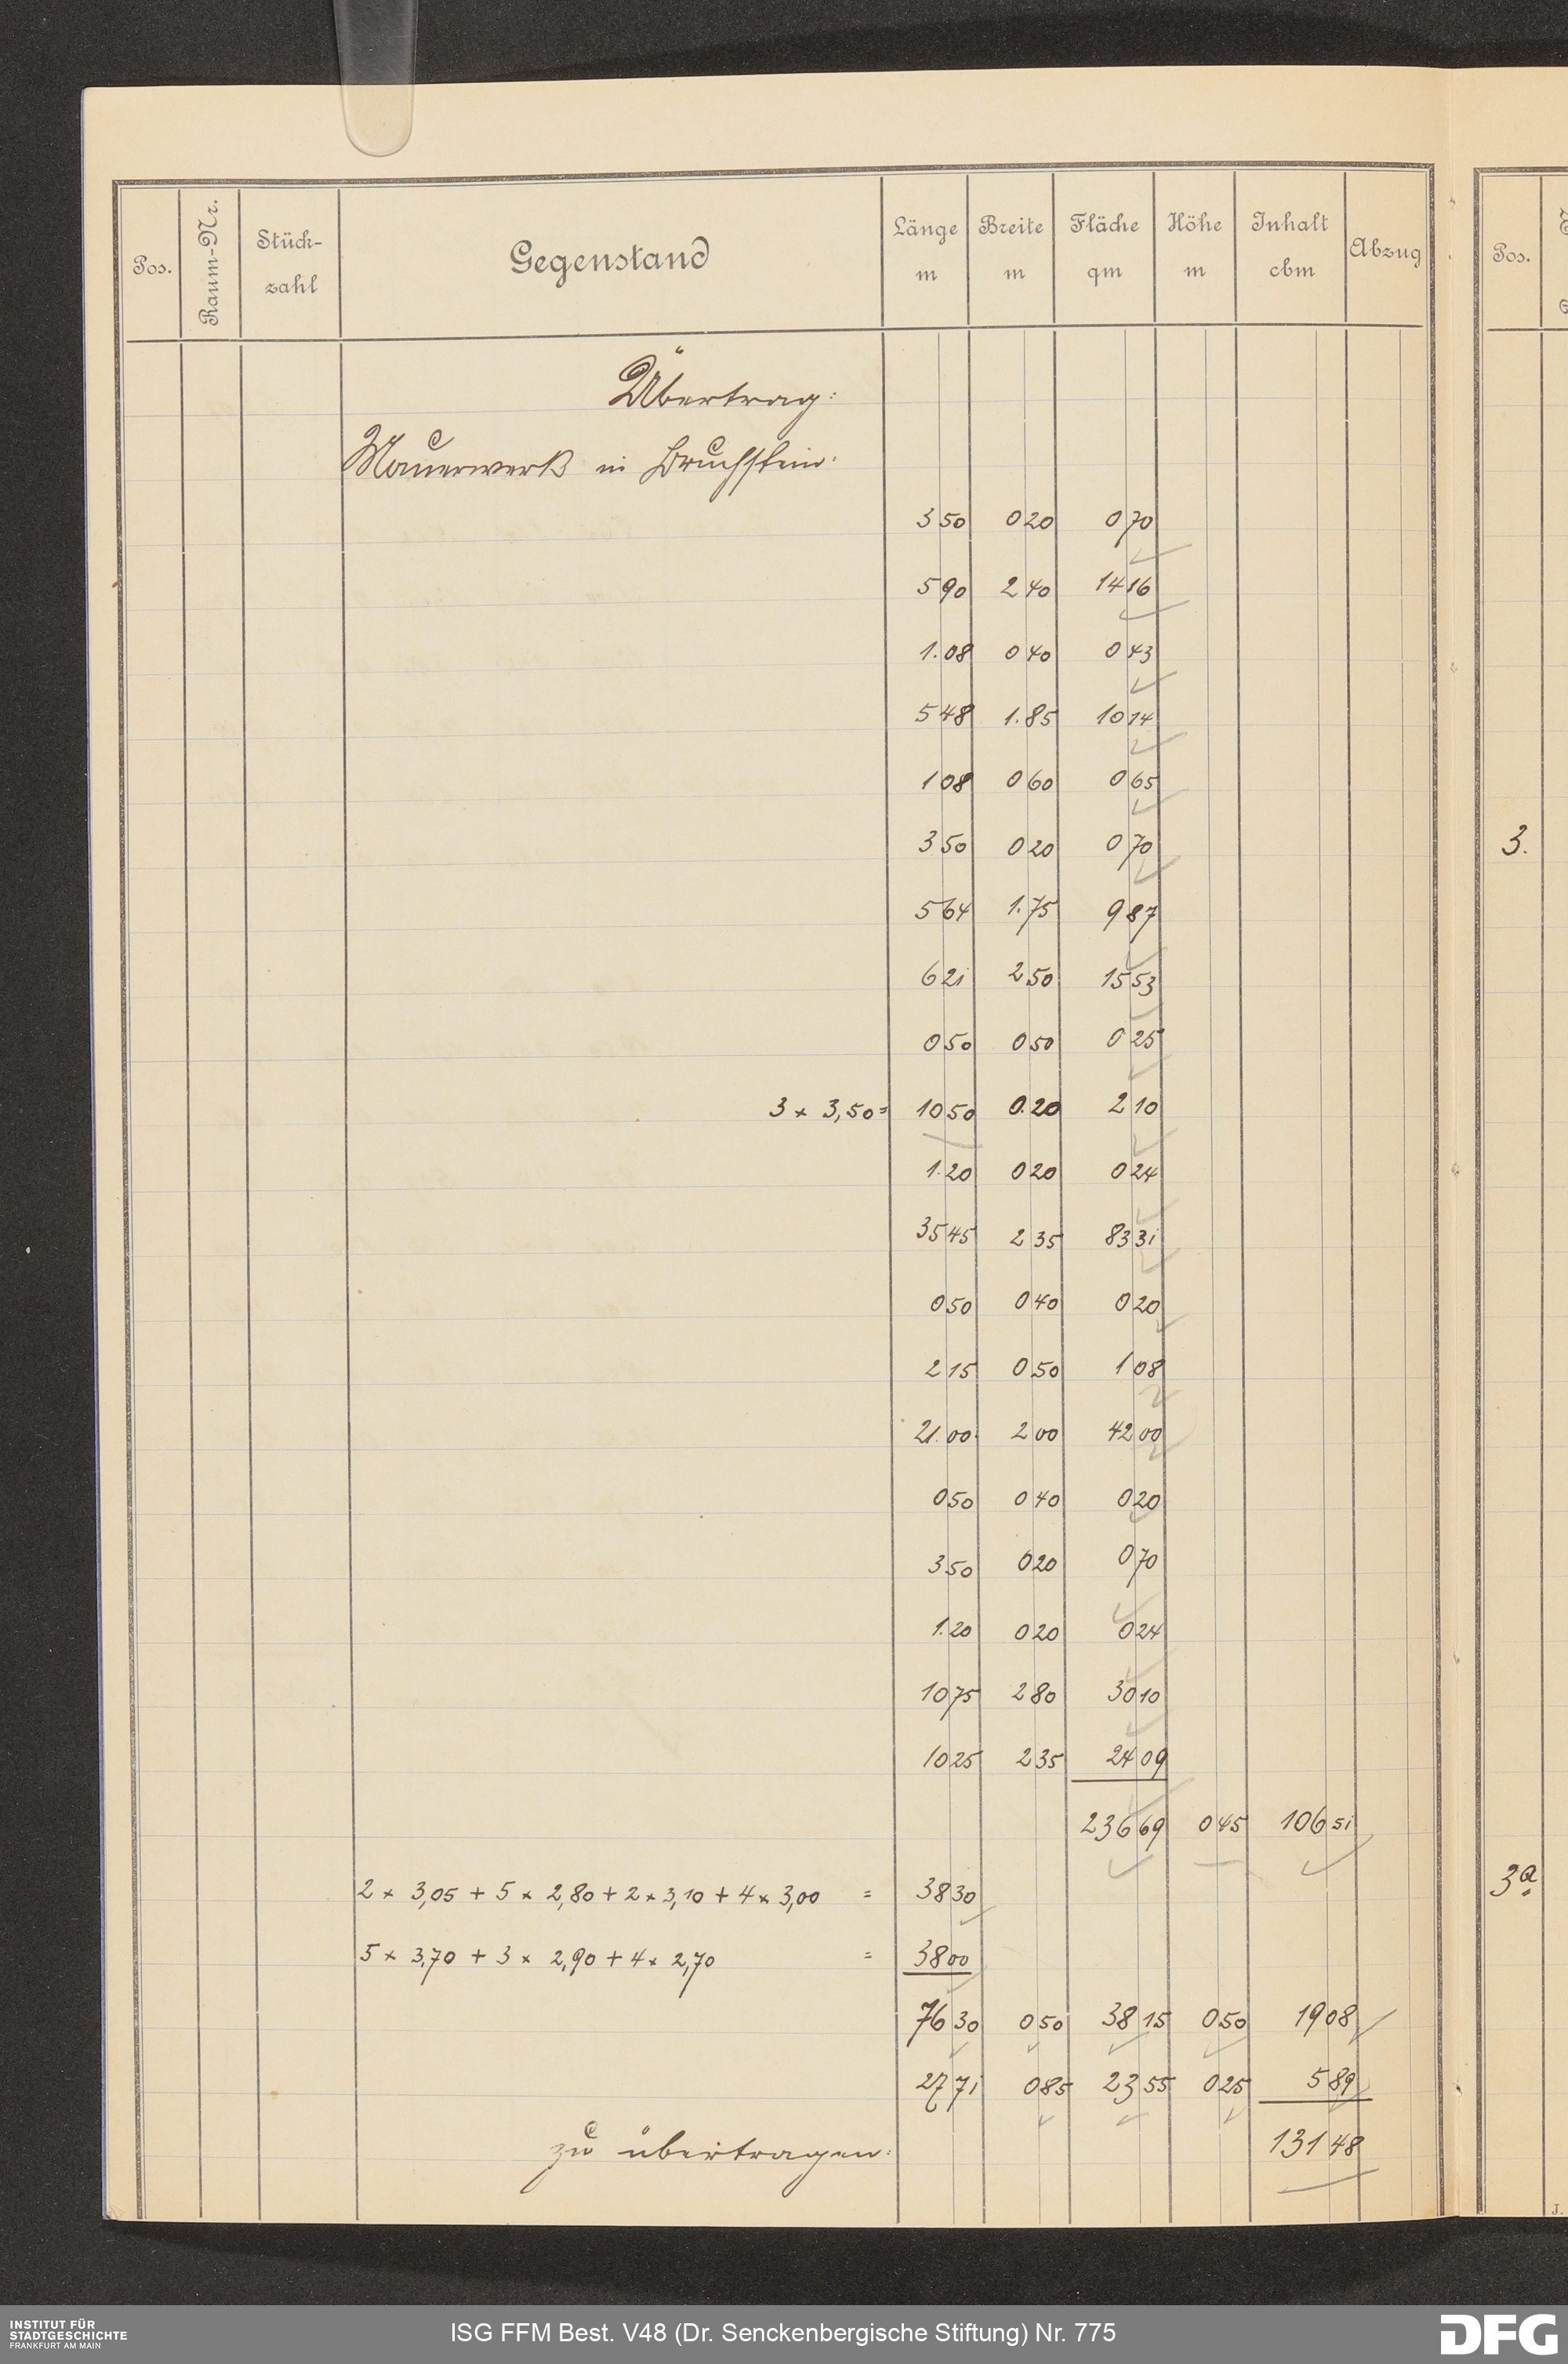 Pos. Raum-Nr. Stück-zahl Gegenstand Länge m Breite m Fläche qm Höhe m Inhalt cbm Abzug Pos.
Übertrag:
Mauerwerk in Bruchstein:
3 50 0 20 0 70
5 90 2 40 14 16
1.08 0 40 0 43
5 48 1.85 10 14
1 08 0 60 0 65
3 50 0 20 0 70 3.
5 64 1.75 9 87
6 21 2 50 15 53
0 50 0 50 0 25
3 × 3,50 = 10 50 0.20 2 10
1.20 0 20 0 24
35 45 2 35 83 31
0 50 0 40 0 20
2 15 0 50 1 08
21.00 2 00 42 00
0 50 0 40 0 20
3 50 0 20 0 70
1.20 0 20 0 24
10 75 2 80 30 10
10 25 2 35 24 09
236 69 0 45 106 51
2 × 3,05 + 5 × 2,80 + 2 × 3,10 + 4 × 3,00 = 38 30 3a
5 × 3,70 + 3 × 2,90 + 4 × 2,70 = 38 00
76 30 0 50 38 15 0 50 19 08
27 71 0 85 23 55 0 25 5 89
zu übertragen: 131 48
J.
INSTITUT FÜR
STADTGESCHICHTE
FRANKFURT AM MAIN
ISG FFM Best. V48 (Dr. Senckenbergische Stiftung) Nr. 775
DFG